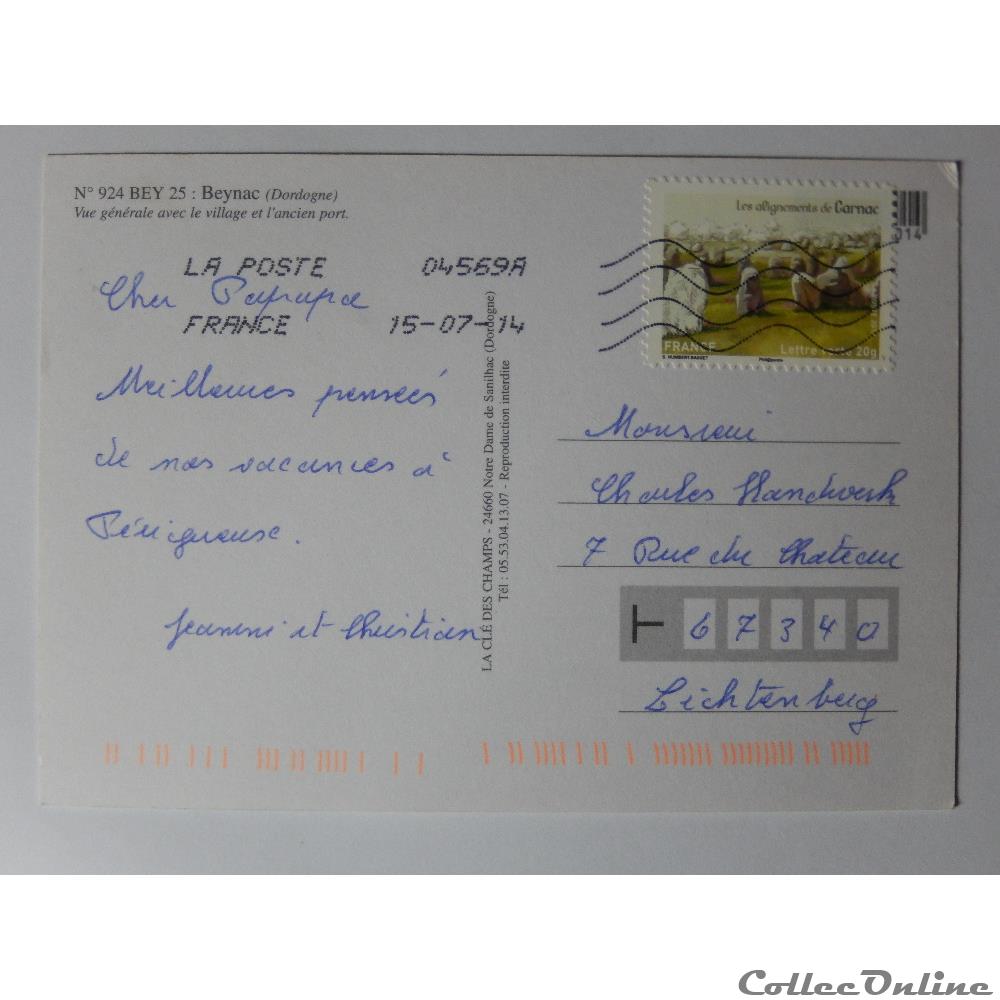 N° 924 BEY 25 : Beynac (Dordogne)
Vue générale avec le village et l'ancien port.
Les alignements de Carnac
014
FRANCE
Lettre verte 20g
S. HUMBERT-BASSET
Phil@poste
LA POSTE 04569A
FRANCE 15-07-14
Cher Papapa
Meilleures pensées
de nos vacances à
Périgueux.
Jeanni et Christian
LA CLÉ DES CHAMPS - 24660 Notre Dame de Sanilhac (Dordogne)
Tél : 05.53.04.13.07 - Reproduction interdite
Monsieur
Charles Handwerk
7 Rue du Chateau
67340
Lichtenberg
CollecOnline